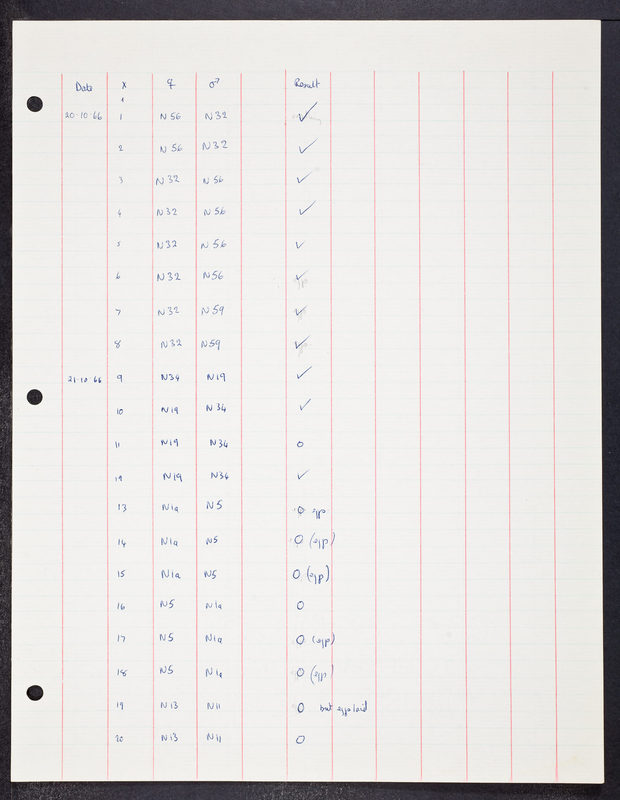 Date x ♀ ♂ Result
20·10·66 1 N56 N32 ✓
2 N56 N32 ✓
3 N32 N56 ✓
4 N32 N56 ✓
5 N32 N56 ✓
6 N32 N56 ✓
7 N32 N59 ✓
8 N32 N59 ✓
21·10·66 9 N34 N19 ✓
10 N19 N34 ✓
11 N19 N34 0
12 N19 N34 ✓
13 N1a N5 0 egg
14 N1a N5 0 (egg)
15 N1a N5 0 (egg)
16 N5 N1a 0
17 N5 N1a 0 (egg)
18 N5 N1a 0 (egg)
19 N13 N11 0 but eggs laid
20 N13 N11 0